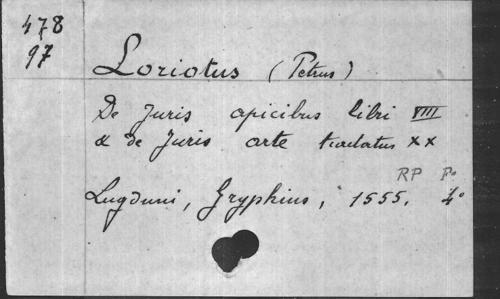 478
97
Loriotus (Petrus)
De Juris apicibus libri VIII
& de Juris arte tractatus XX
RP F°
Lugduni, Gryphius, 1555. 4°